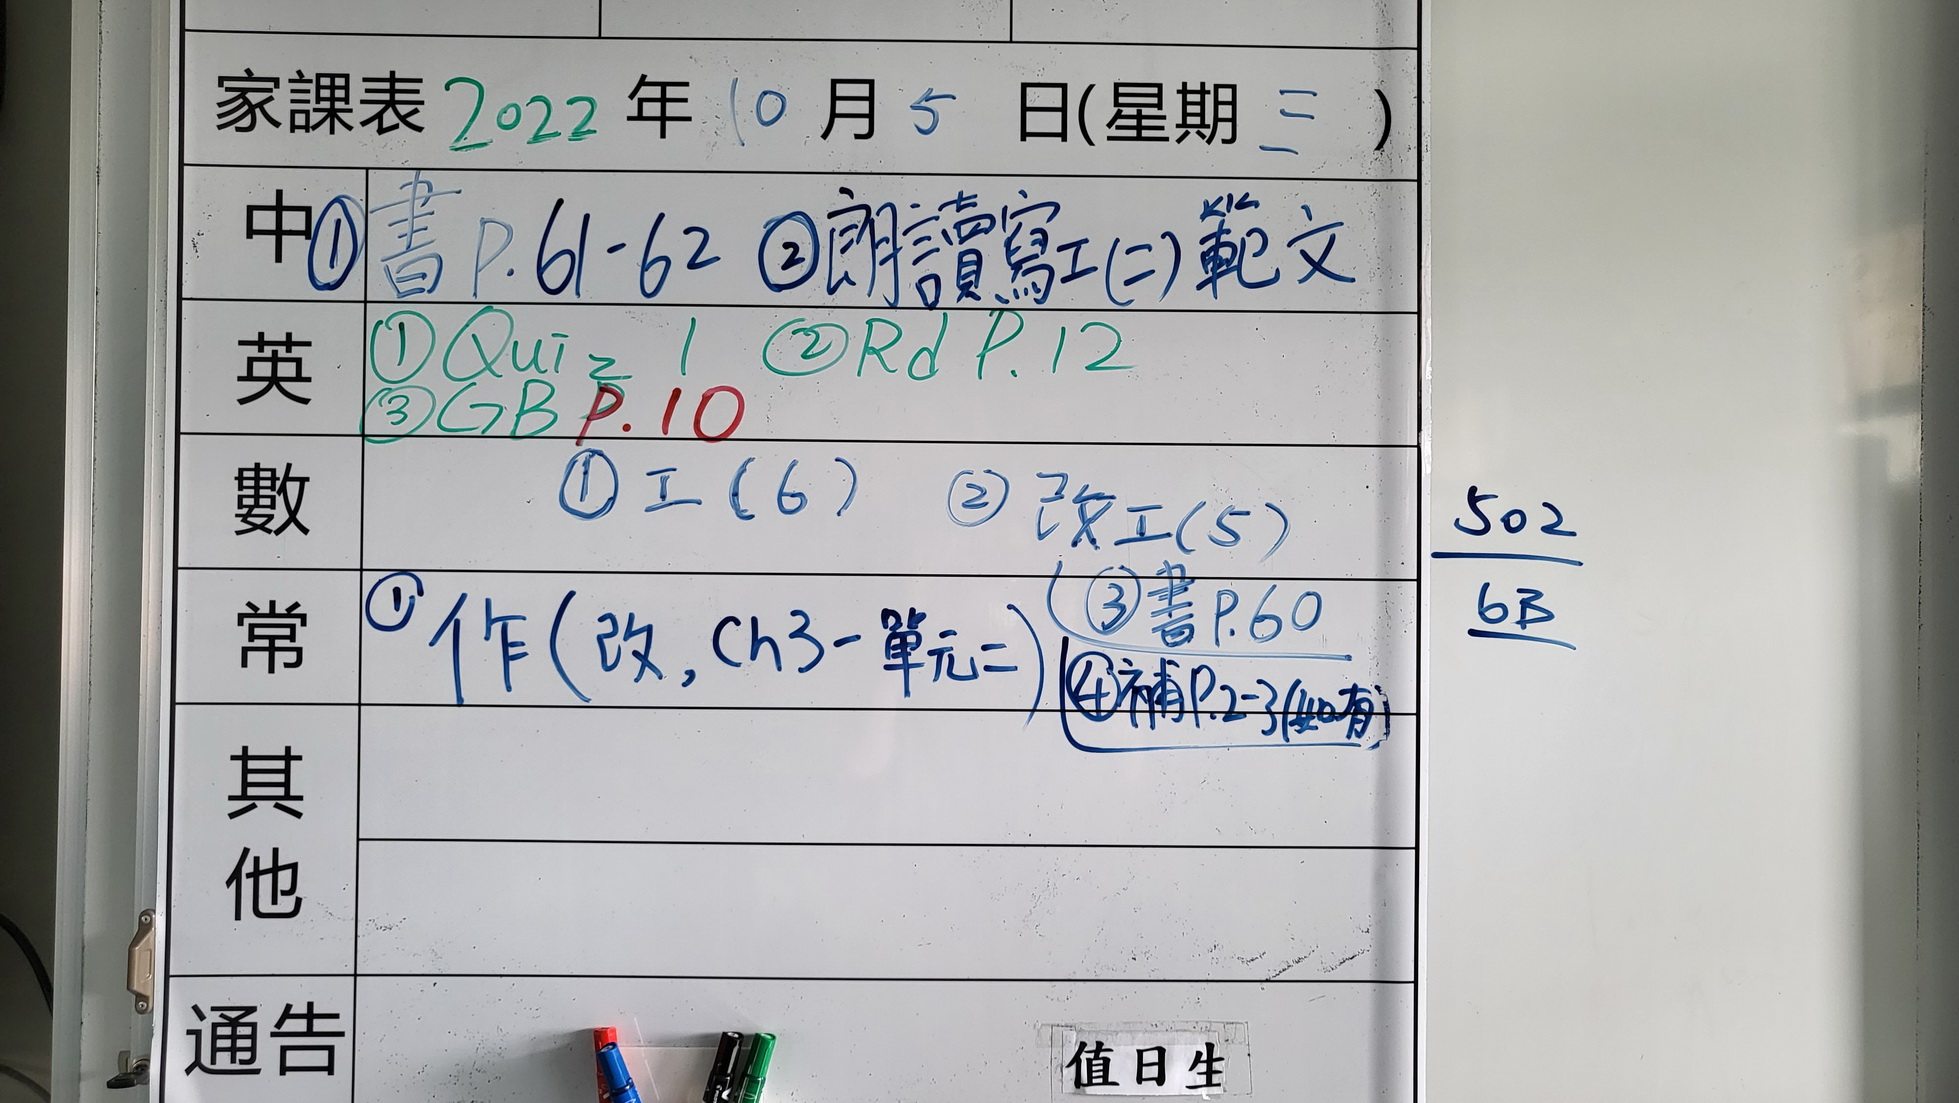 家課表 2022 年 10 月 5 日(星期 三 )
中 ①書 P.61-62 ②朗讀寫工(二)範文
英 ①Quiz 1 ②Rd P.12
③GB P.10
數 ①工(6) ②改工(5)
③書P.60
④補P.2-3(如有)
常 ①作(改,Ch3-單元二)
其他
通告
值日生
502
6B